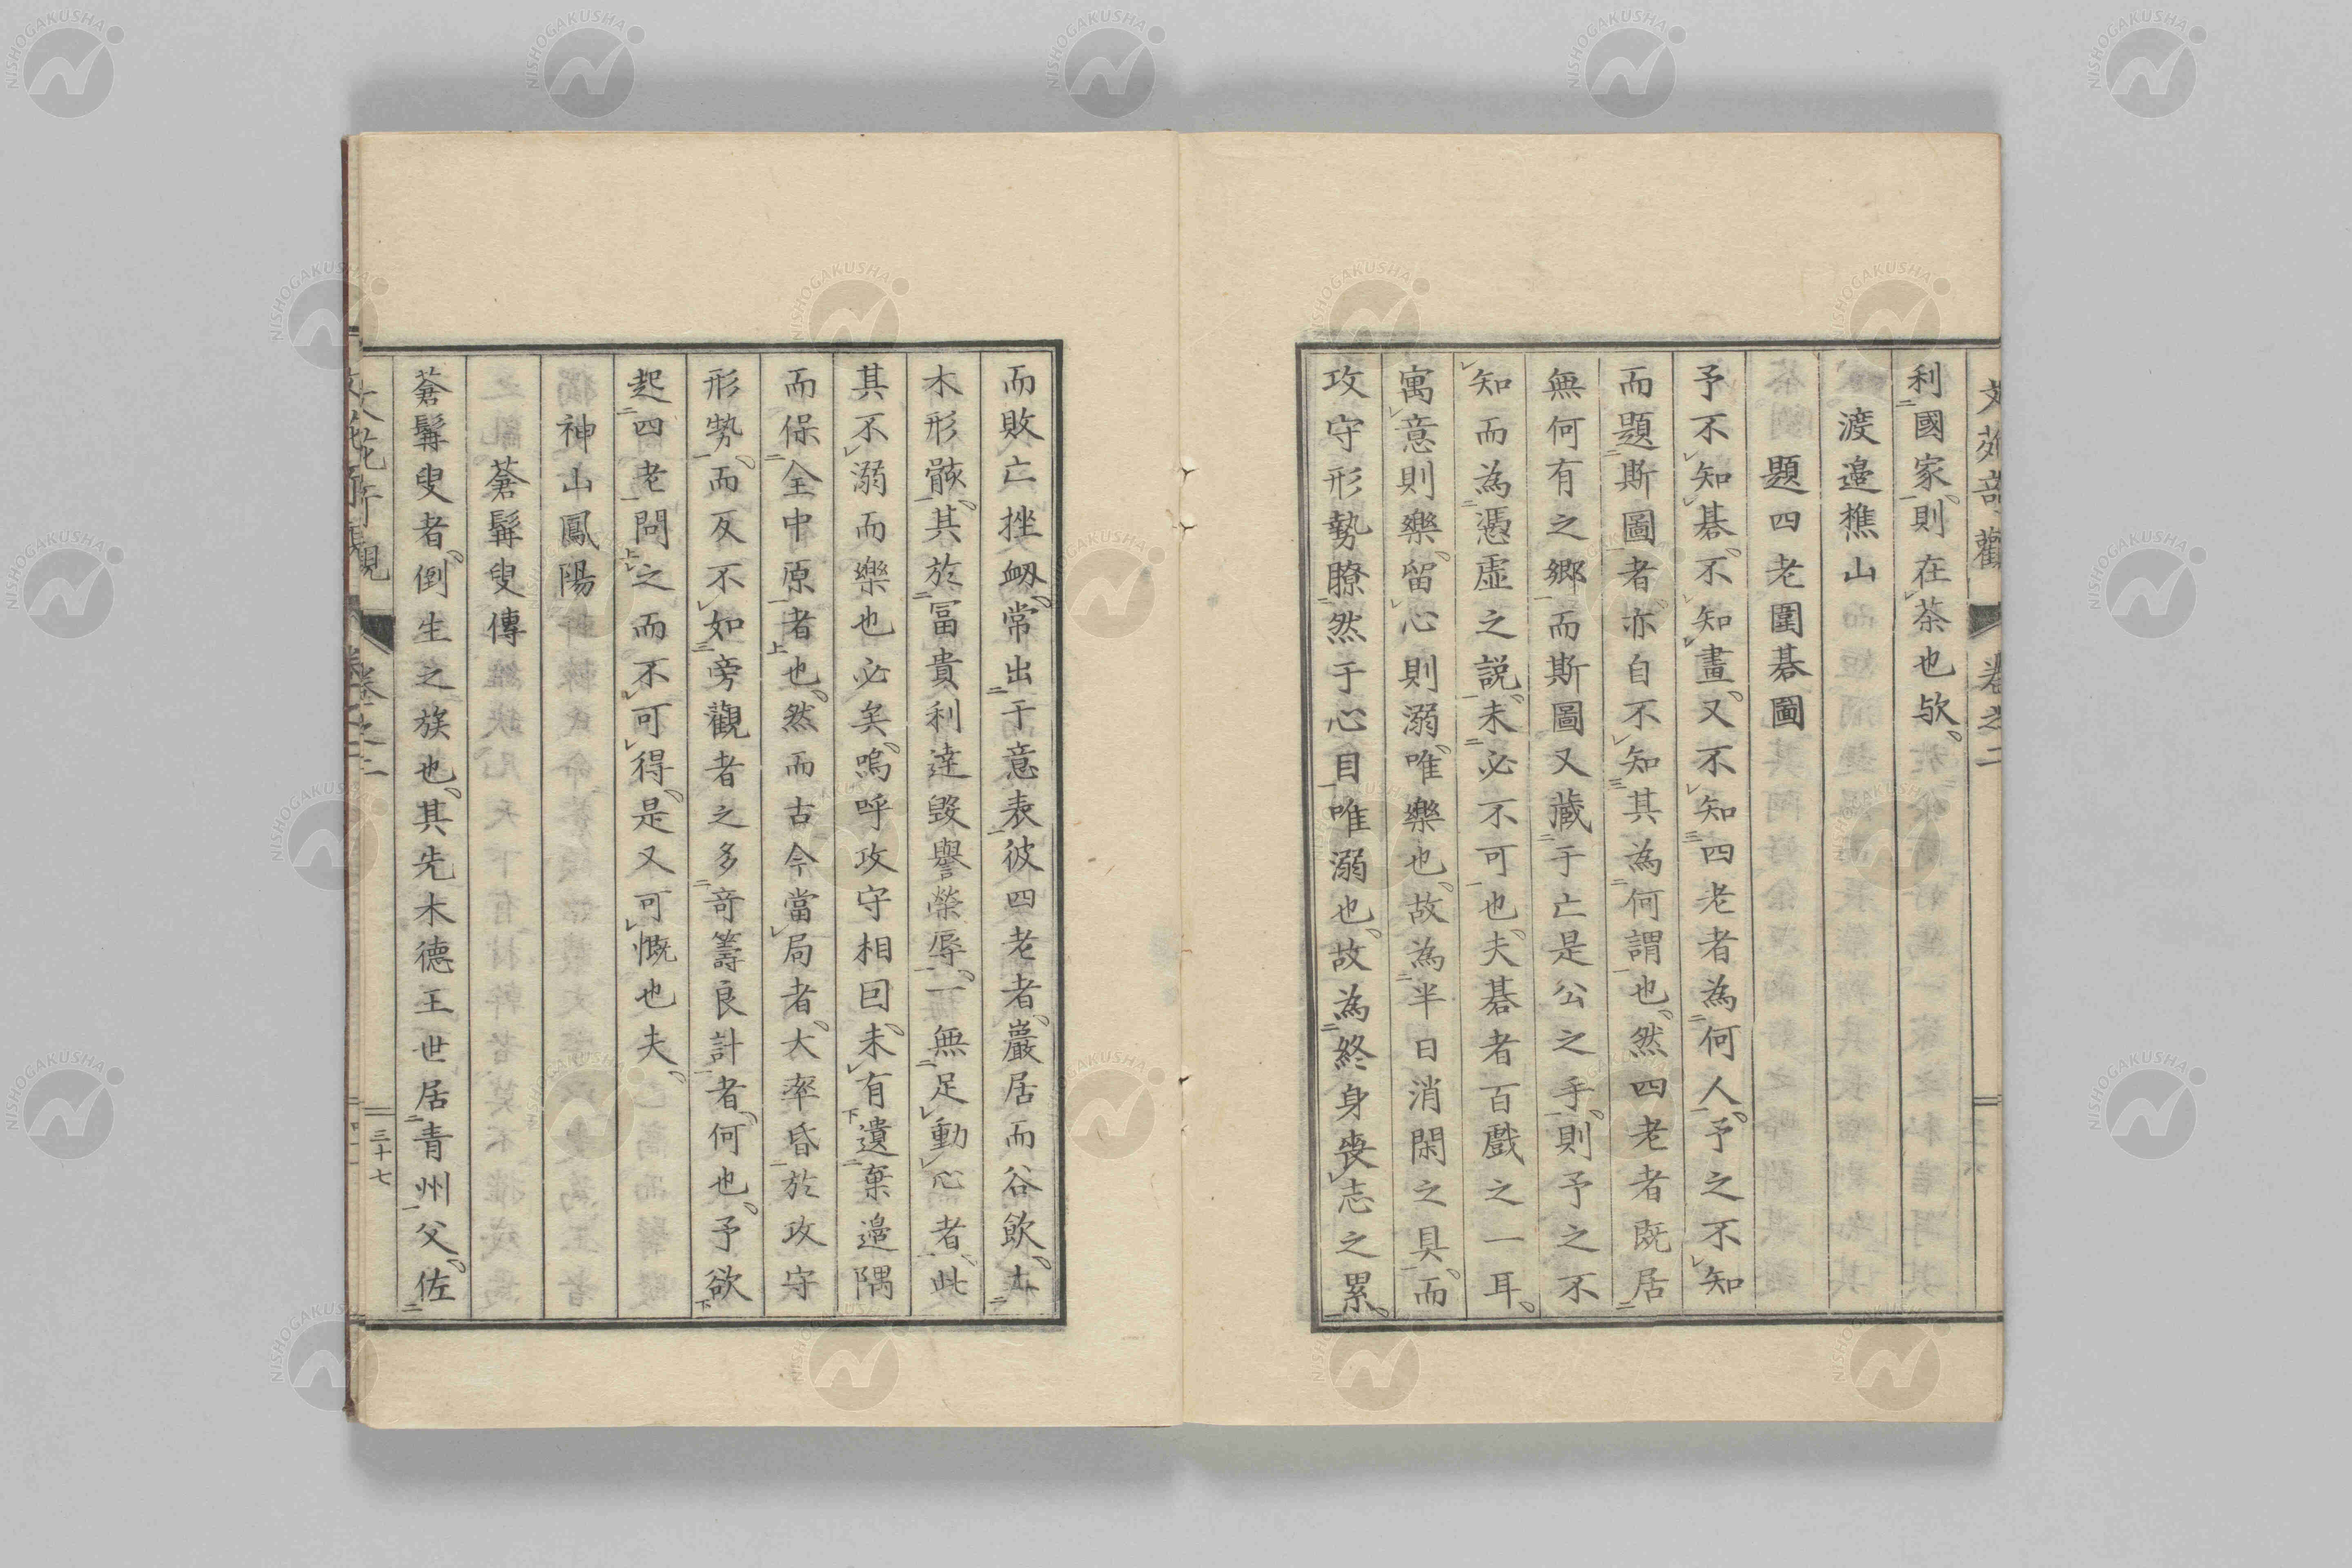 利國家則在茶也欤
渡邉樵山
題四老圍碁圖
予不知碁不知畫又不知四老者為何人予之不知
而題斯圖者亦自不知其為何謂也然四老者既居
無何有之郷而斯圖又藏于亡是公之手則予之不
知而為憑虛之説未必不可也夫碁者百戲之一耳
寓意則樂留心則溺唯樂也故為半日消閑之具而
攻守形勢瞭然于心目唯溺也故為終身喪志之累
而敗亡挫衂常出于意表彼四老者巖居而谷飲土
木形骸其於冨貴利達毀譽榮辱一無足動心者此
其不溺而樂也必矣嗚呼攻守相囙未有遺棄邉隅
而保全中原者也然而古今當局者大率昏於攻守
形勢而反不如旁觀者之多竒籌良計者何也予欲
起四老問之而不可得是又可慨也夫
神山鳳陽
蒼髯叟傳
蒼髯叟者倒生之族也其先木德王世居青州父佐
卷之二
三十七